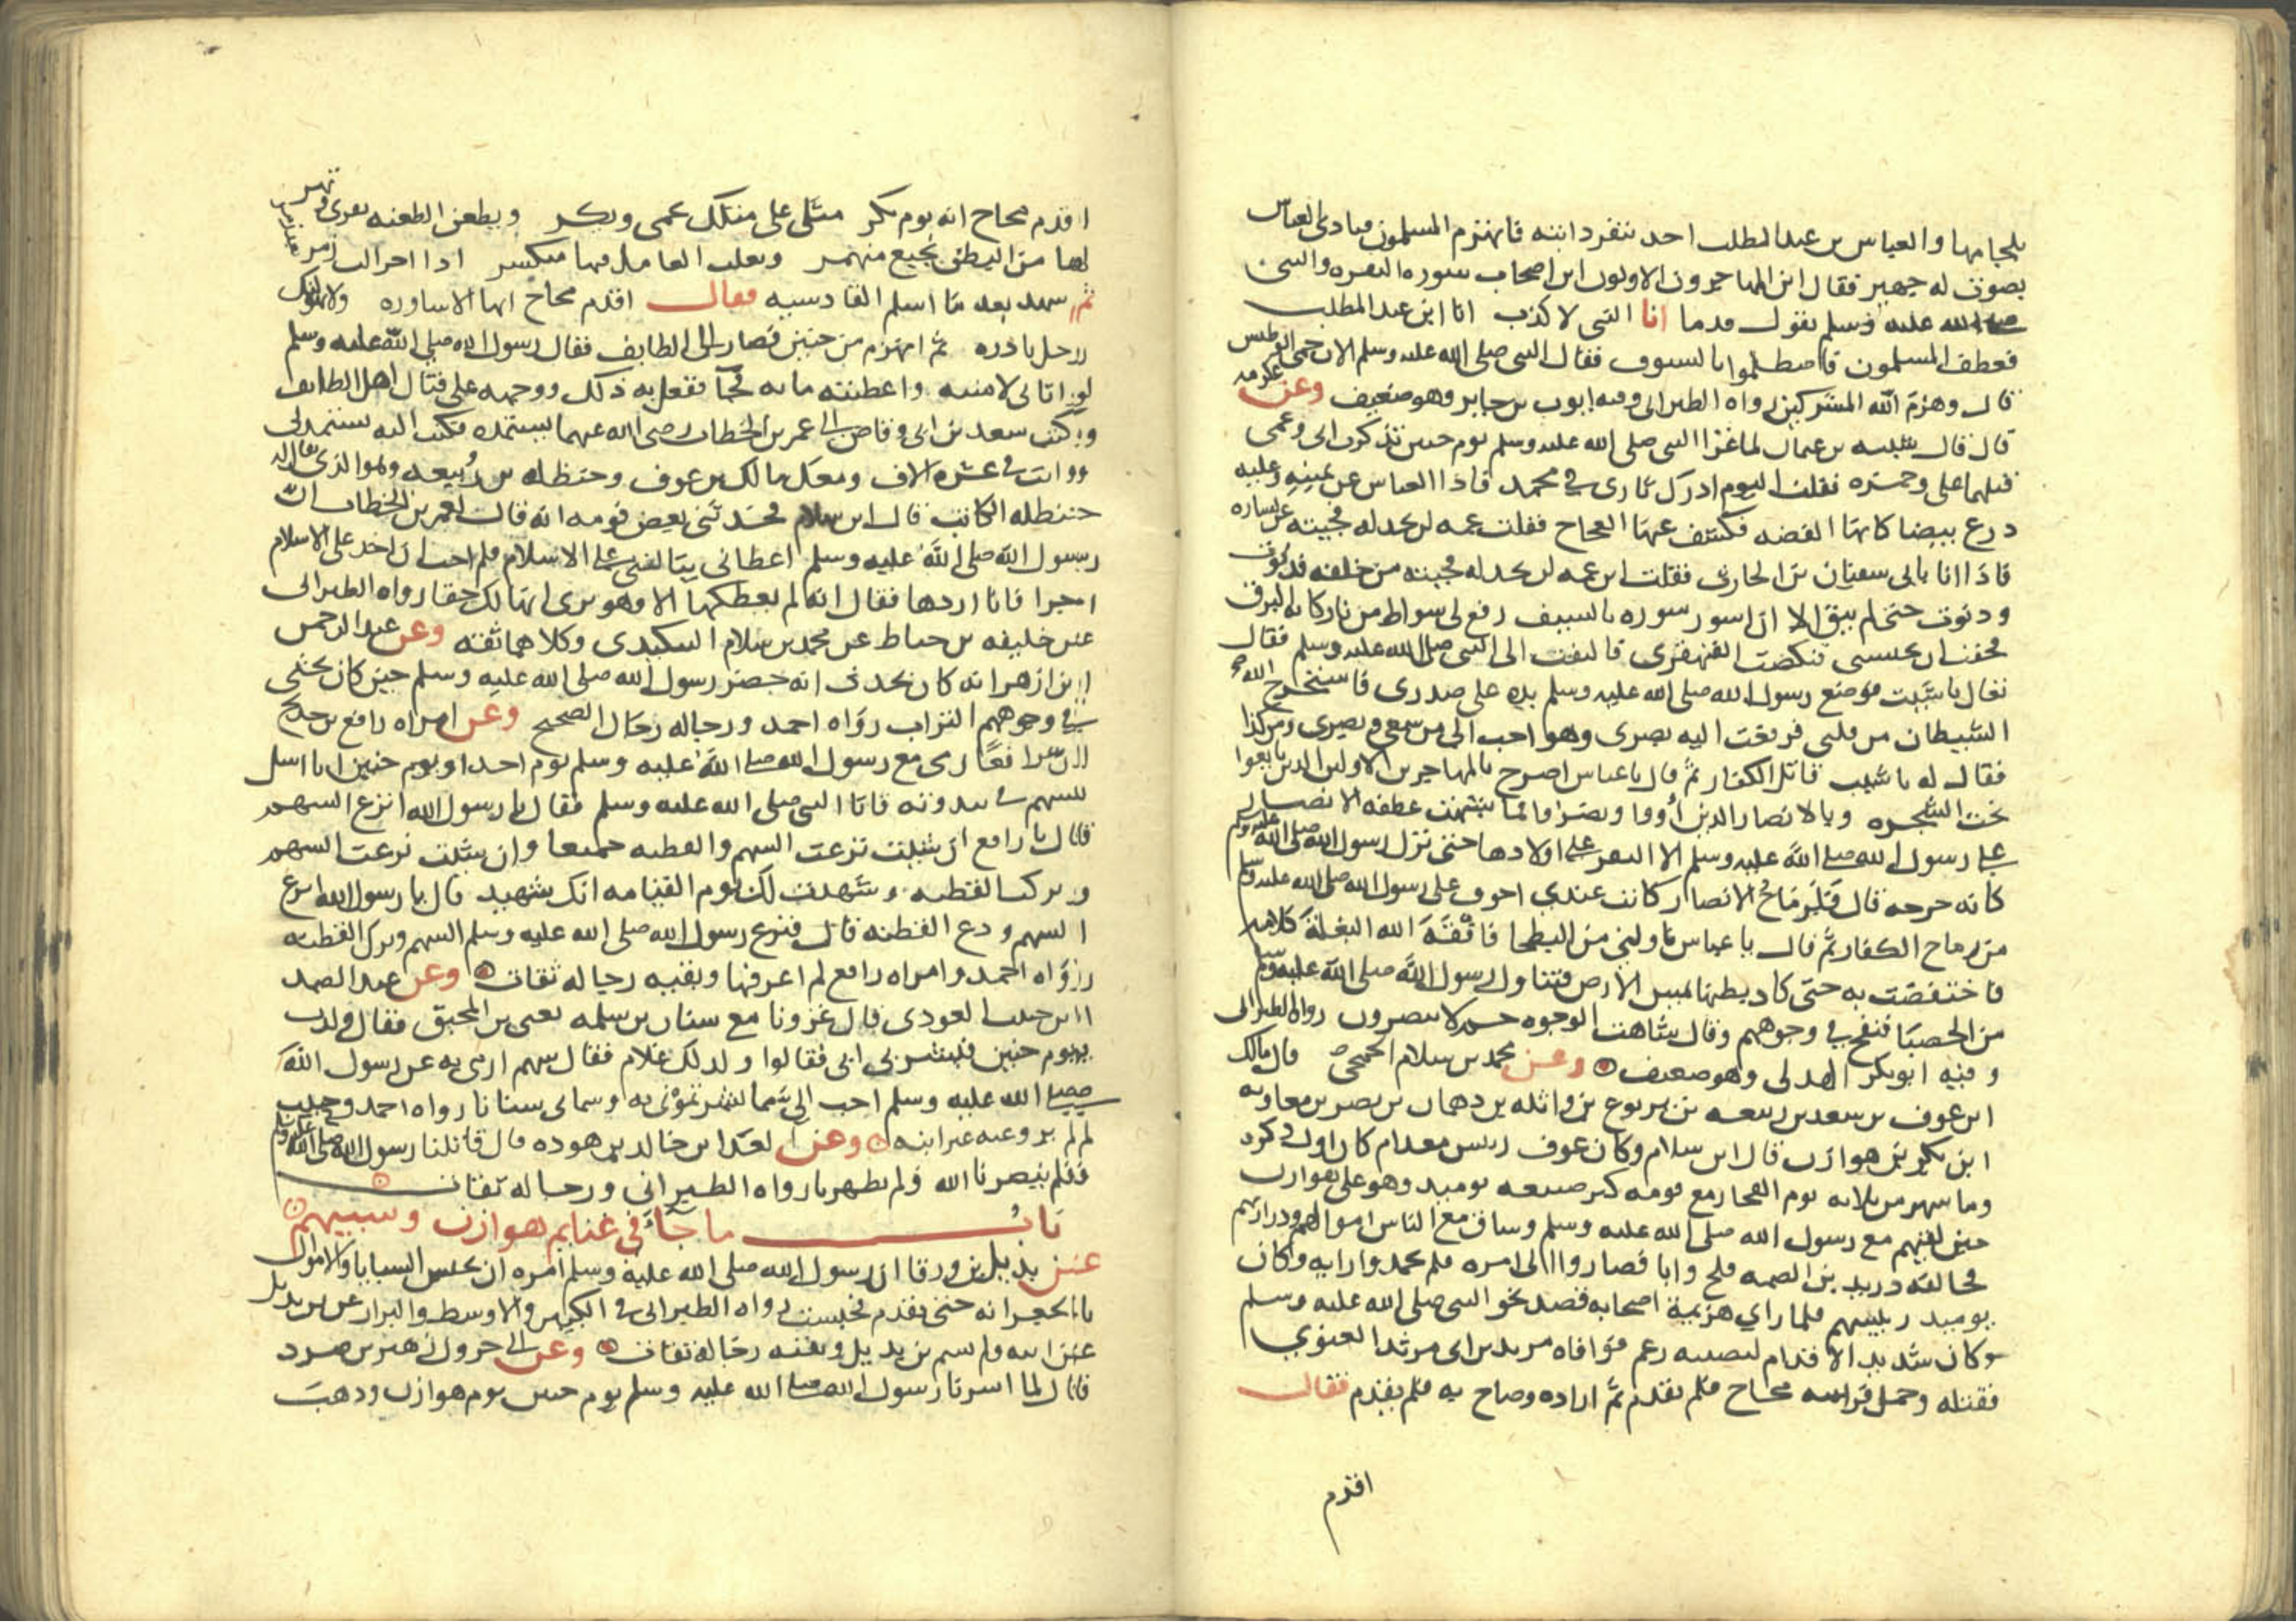 بلجامها والعباس بن عبد المطلب احد ثنفرد ابنته فانهزم المسلمون فنادى العباس
بصوت له جهير فقال اين المهاجرون الاولون اين اصحاب سوره البقره والنبى
صلى الله عليه وسلم يقول قدما انا النبى لا كذب انا ابن عبد المطلب
فعطف المسلمون فاصطلموا بالسيوف فقال النبى صلى الله عليه وسلم الان حمى الوطيس
قال وهزم الله المشركين رواه الطبرانى وفيه ايوب بن جابر وهو ضعيف وعن عكرمه
قال قال شيبه بن عثمان لما غزا النبى صلى الله عليه وسلم يوم حنين تذكرت ابى وعمى
قتلهما على وحمزه فقلت اليوم ادرك ثارى فى محمد فاذا العباس عن يمينه وعليه
درع بيضا كانها الفضه فكشف عنها العجاج فقلت عمه لن يخذله فجيته عن يساره
فاذا انا بابى سفيان بن الحارث فقلت ابن عمه لن يخذله فجيته من خلفه فدنوت
ودنوت حتى لم يبق الا ان اسور سوره بالسيف رفع لى شواظ من نار كانه البرق
فخفت ان يحبسنى فنكصت القهقرى فالتفت الى النبى صلى الله عليه وسلم فقال
تعال يا شيبت فوضع رسول الله صلى الله عليه وسلم يده على صدرى فاستخرج الله
الشيطان من قلبى فرفعت اليه بصرى وهو احب الى من سمعى وبصرى ومن كذا
فقال له يا شيب قاتل الكفار ثم قال يا عباس اصرخ بالمهاجرين الاولين الذين بايعوا
تحت الشجره وبالانصار الذين اووا ونصروا فما شبهت عطفه الانصار
على رسول الله صلى الله عليه وسلم الا البقر على اولادها حتى نزل رسول الله صلى الله عليه وسلم
كانه حرجه قال فلرماح الانصار كانت عندى اخوف على رسول الله صلى الله عليه وسلم
من رماح الكفار ثم قال يا عباس ناولنى من البطحا فافقه الله البغله كلامه
فاختفضت به حتى كاد بطنها يمس الارض فتناول رسول الله صلى الله عليه وسلم
من الحصبا فنفخ فى وجوههم وقال شاهت الوجوه حم لا ينصرون رواه الطبرانى
وفيه ابو بكر الهذلى وهو ضعيف وعن محمد بن سلام الجمحى قال مالك
ابن عوف بن سعد بن ربيعه بن يربوع بن واثله بن دهمان بن نصر بن معاويه
ابن بكر بن هوازن قال ابن سلام وكان عوف رئيس مقدام كان اول ذكره
وما شهر من بلائه يوم الفجار مع قومه كثر صنيعه يوميذ وهو على هوازن
حين لقيهم مع رسول الله صلى الله عليه وسلم وساق مع الناس اموالهم وذراريهم
فخالفه دريد بن الصمه فلج وابا فصاروا الى امره فلم يحمدوا رايه وكان
يوميذ رييسهم فلما راى هزيمة اصحابه قصد نحو النبى صلى الله عليه وسلم
وكان شديد الاقدام ليصيبه زعم فوافاه مرثد بن ابى مرثد الغنوى
فقتله وحمل فرسه محاج فلم تقدم ثم اراده وصاح به فلم يقدم فقال
اقدم
اقدم محاج انه يوم نكر مثلى على مثلك يحمى ويكر ويطعن الطعنه تعوى وتهر
لها من البطن نجيع منهمر وثعلب العامل فيها منكسر اذا احزالت زمر بعد زمر
ثم شهد بعد ما اسلم القادسيه فقال اقدم محاج انها الاساوره ولا تهولنك
رجل بادره ثم انهزم من حنين فصار الى الطايف فقال رسول الله صلى الله عليه وسلم
لو اتانى لامنته واعطيته مايه فجا ففعل به ذلك ووجهه على قتال اهل الطايف
وكتب سعد بن ابى وقاص الى عمر بن الخطاب رضى الله عنهما يستمده فكتب اليه تستمدنى
وانت فى عشره الاف ومعك مالك بن عوف وحنظله بن ربيعه وهو الذى يقال له
حنظله الكاتب قال ابن سلام فحدثنى بعض قومه انه قال لعمر بن الخطاب ان
رسول الله صلى الله عليه وسلم اعطانى يتالفنى على الاسلام فلم احب ان اخذ على الاسلام
اجرا فانا اردها فقال انه لم يعطكها الا وهو يرى انها لك حقا رواه الطبرانى
عن خليفه بن خياط عن محمد بن سلام البيكندى وكلاهما ثقه وعن عبد الرحمن
ابن ازهر انه كان يحدث انه حضر رسول الله صلى الله عليه وسلم حين كان يحثى
فى وجوههم التراب رواه احمد ورجاله رجال الصحيح وعن امراه رافع بن خديج
ان رافعا رمى مع رسول الله صلى الله عليه وسلم يوم احد او يوم حنين انا اشك
بسهم فى ثندوته فاتا النبى صلى الله عليه وسلم فقال يا رسول الله انزع السهم
قال يا رافع ان شيت نزعت السهم والقطبه جميعا وان شيت نزعت السهم
وتركت القطبه وشهدت لك يوم القيامه انك شهيد قال يا رسول الله انزع
السهم ودع القطبه قال فنزع رسول الله صلى الله عليه وسلم السهم وترك القطبه
رواه احمد وامراه رافع لم اعرفها وبقيه رجاله ثقات وعن عبد الصمد
ابن حبيب العوذى قال غزونا مع سنان بن سلمه يعنى بن المحبق فقال ولدت
يوم حنين فبشر بى ابى فقالوا ولد لك غلام فقال سهم ارمى به عن رسول الله
صلى الله عليه وسلم احب الى مما بشرتمونى به وسمانى سنانا رواه احمد وحبيب
لم يرو عنه غير ابنه وعن العدا بن خالد بن هوده قال قاتلنا رسول الله صلى الله عليه وسلم
فلم ينصرنا الله ولم يظهرنا رواه الطبرانى ورجاله ثقات
باب ما جاء فى غنايم هوازن وسبيهم
عن بديل بن ورقا ان رسول الله صلى الله عليه وسلم امره ان يحبس السبايا والاموال
بالجعرانه حتى يقدم فحبست رواه الطبرانى فى الكبير والاوسط والبزار عن بن بديل
عن ابيه ولم يسم بن بديل وبقيه رجاله ثقات وعن ابى جرول زهير بن صرد
قال لما اسرنا رسول الله صلى الله عليه وسلم يوم حنين يوم هوازن وذهب